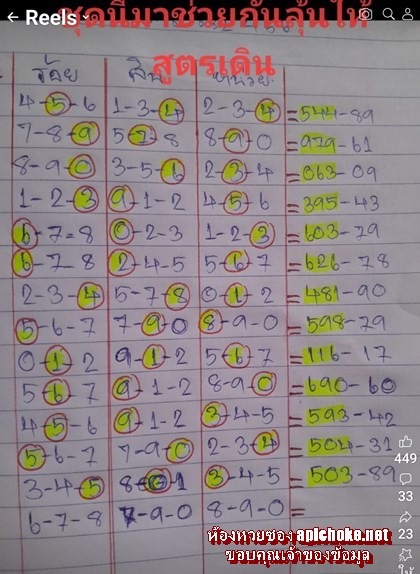 Reels
ชุดนี้มาช่วยกันลุ้นให้
สูตรเดิน
ร้อย สิบ หน่วย
4-5-6 1-3-4 2-3-4 =544-89
7-8-9 5-7-8 8-9-0 =979-61
8-9-0 3-5-6 2-3-4 =063-09
1-2-3 9-1-2 4-5-6 =395-43
6-7-8 0-2-3 1-2-3 =603-79
6-7-8 2-4-5 5-6-7 =626-78
2-3-4 5-7-8 0-1-2 =481-90
5-6-7 7-9-0 8-9-0 =598-79
0-1-2 9-1-2 5-6-7 =116-17
5-6-7 9-1-2 8-9-0 =690-60
4-5-6 9-1-2 3-4-5 =593-42
5-6-7 7-9-0 2-3-4 =504-31
3-4-5 8-0-1 3-4-5 =503-89
6-7-8 7-9-0 8-9-0 =
449
33
23
ห้องหวยซอง aplchoke.net
ขอบคุณเจ้าของข้อมูล